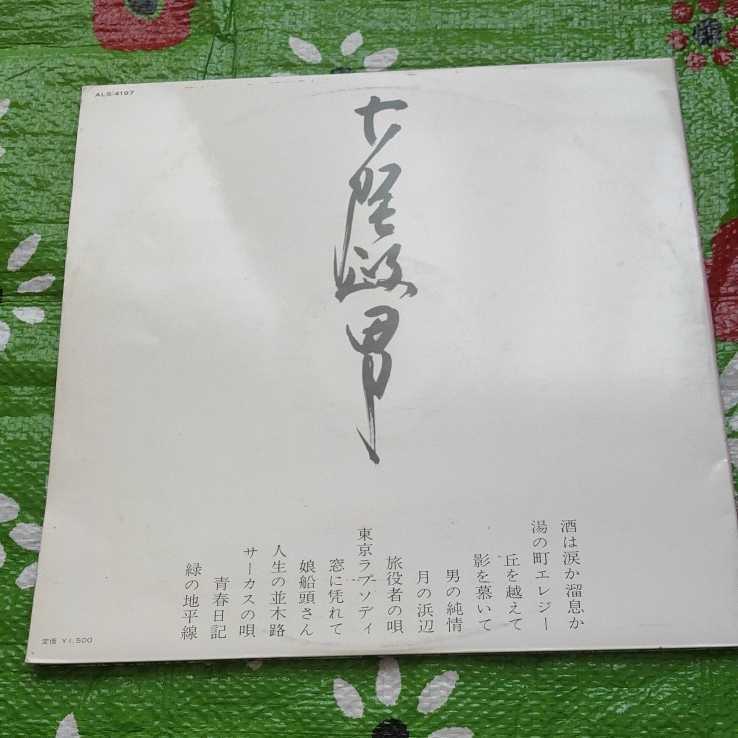 ALS-4197
古賀政男
酒は涙か溜息か
湯の町エレジー
丘を越えて
影を慕いて
男の純情
月の浜辺
旅役者の唄
東京ラプソディ
窓に凭れて
娘船頭さん
人生の並木路
サーカスの唄
青春日記
緑の地平線
定価 ¥1,500